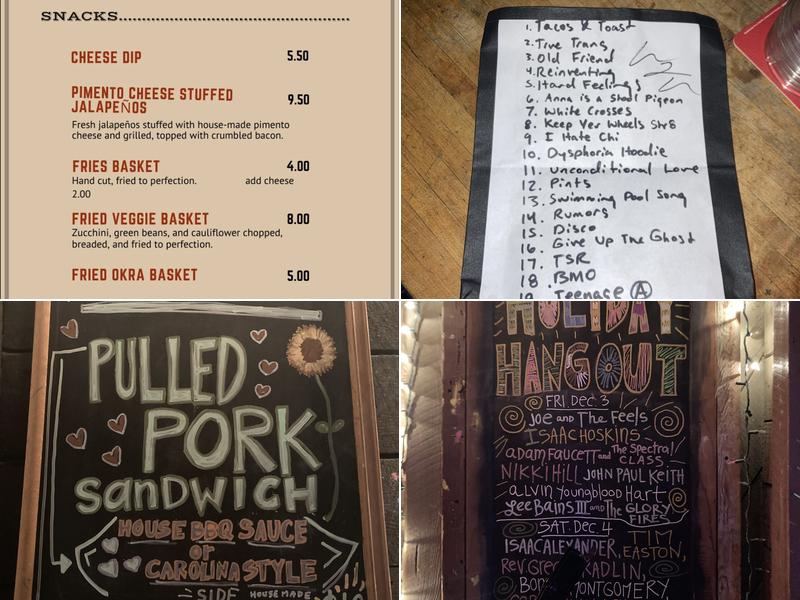 SNACKS
CHEESE DIP 5.50
PIMENTO CHEESE STUFFED JALAPEÑOS 9.50
Fresh jalapeños stuffed with house-made pimento
cheese and grilled, topped with crumbled bacon.
FRIES BASKET 4.00
Hand cut, fried to perfection. add cheese
2.00
FRIED VEGGIE BASKET 8.00
Zucchini, green beans, and cauliflower chopped,
breaded, and fried to perfection.
FRIED OKRA BASKET 5.00
1. Tacos & Toast
2. True Trans
3. Old Friend
4. Reinventing
5. Hard Feelings
6. Anna is a Stool Pigeon
7. White Crosses
8. Keep Yer Wheels Str8
9. I Hate Chi
10. Dysphoria Hoodie
11. Unconditional Love
12. Pints
13. Swimming Pool Song
14. Rumors
15. Disco
16. Give Up The Ghost
17. TSR
18. BMO
19. Teenage A
PULLED
PORK
SANDWICH
HOUSE BBQ SAUCE
or
CAROLINA STYLE
SIDE HOUSE MADE
HOLIDAY
HANGOUT
FRI DEC 3
Joe and The Feels
ISAAC HOSKINS
adam Faucett and The Spectral
CLASS
NIKKI HILL JOHN PAUL KEITH
alvin youngblood Hart
Lee Bains III and The GLORY
FIRES
SAT. DEC 4
ISAAC ALEXANDER, TIM
EASTON,
MONTGOMERY,